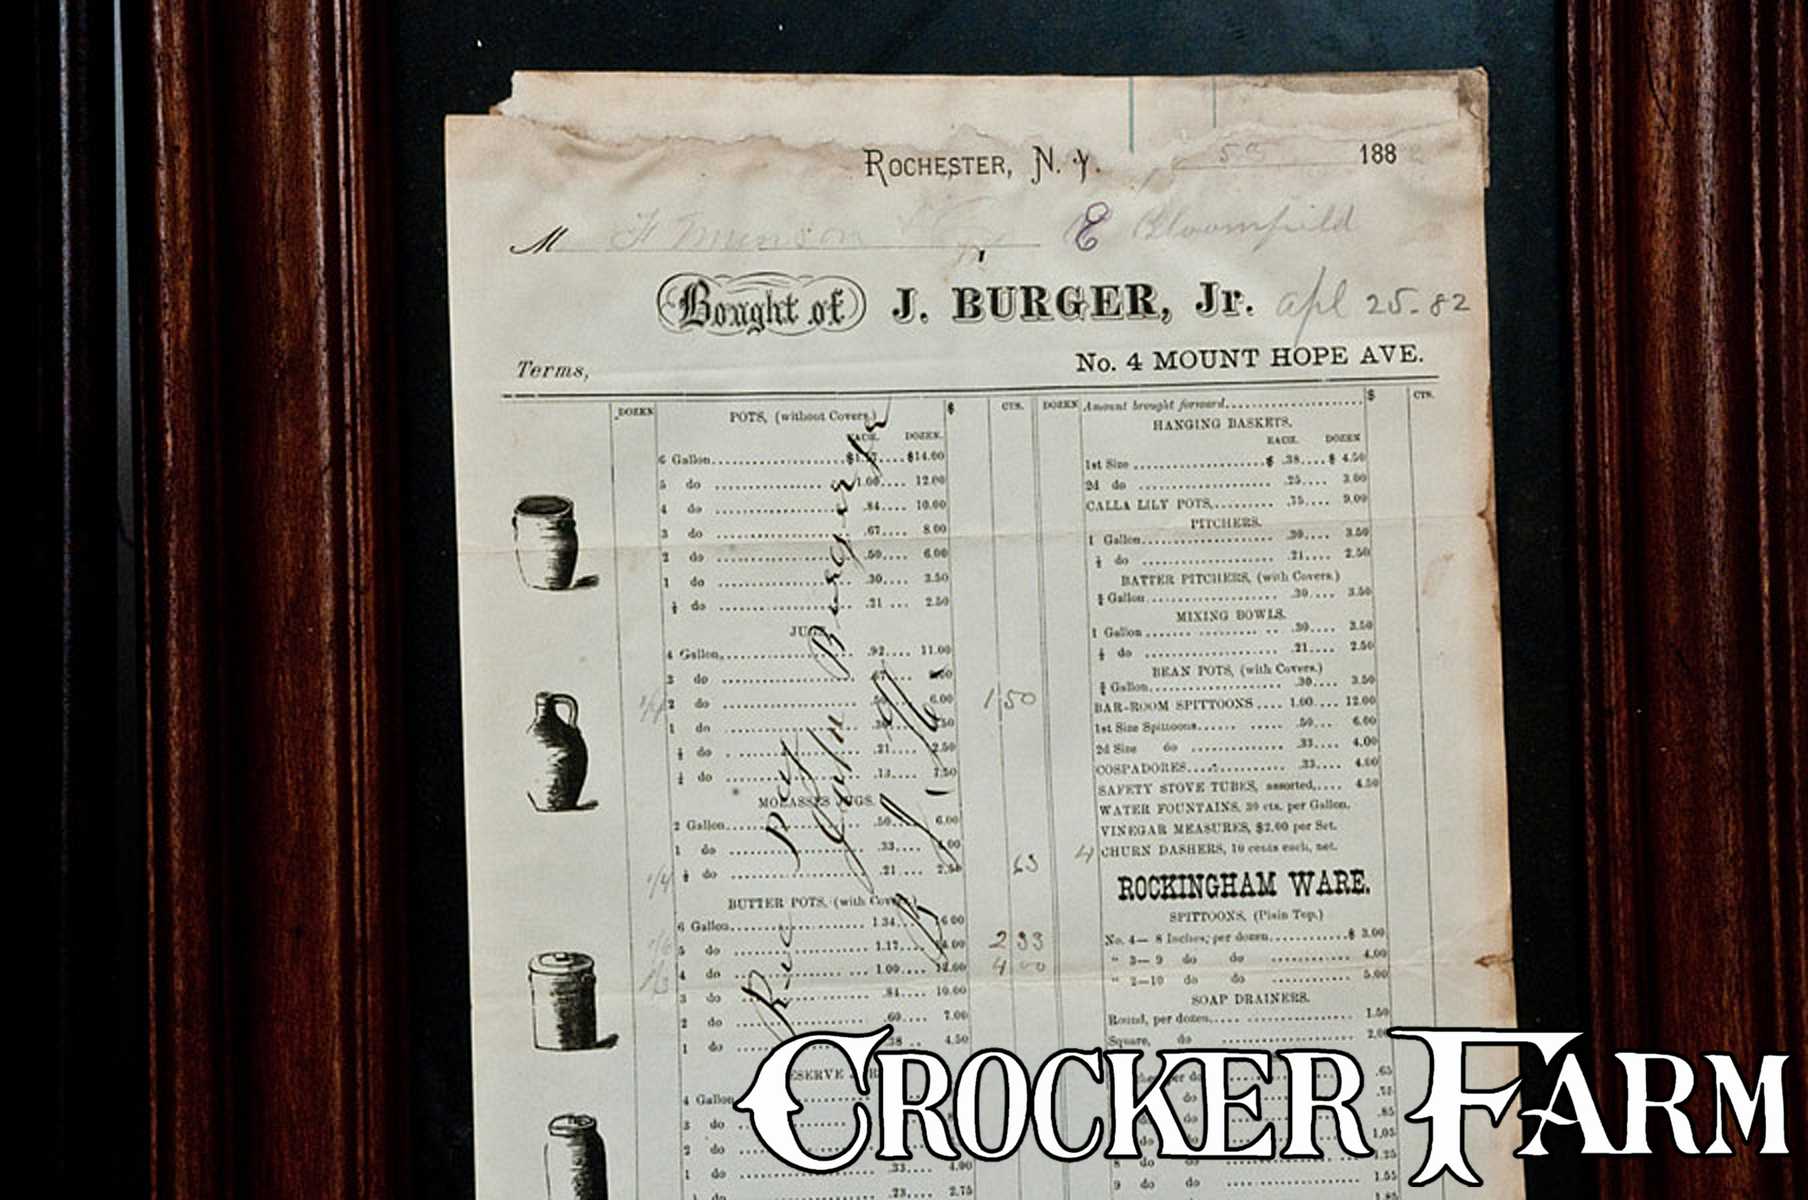 ROCHESTER, N. Y. 188
M E Bloomfield
Bought of J. BURGER, Jr. apl 25. 82
Terms,
No. 4 MOUNT HOPE AVE.
DOZEN $ CTS.
POTS, (without Covers.)
EACH. DOZEN.
6 Gallon $1.17 $14.00
5 do 1.00 12.00
4 do .84 10.00
3 do .67 8.00
2 do .50 6.00
1 do .30 3.50
½ do .21 2.50
JUGS.
4 Gallon .92 11.00
3 do .67
2 do 6.00 1 50
1 do
½ do .21 2.50
¼ do .13 1.50
MOLASSES JUGS.
2 Gallon .50 6.00
1 do .33 4.00
1/4 ½ do .21 2.50 63
BUTTER POTS, (with Covers.)
6 Gallon 1.34 16.00
1/6 5 do 1.17 14.00 2 33
1/3 4 do 1.00 12.00 4 00
3 do .84 10.00
2 do .60 7.00
1 do .38 4.50
PRESERVE JARS
4 Gallon
3 do
2 do
1 do .33 4.00
do .23 2.75
Rec Pay
J Burger Jr
DOZEN $ CTS.
Amount brought forward
HANGING BASKETS.
EACH. DOZEN
1st Size $ .38 $ 4.50
2d do .25 3.00
CALLA LILY POTS, .75 9.00
PITCHERS.
1 Gallon .30 3.50
½ do .21 2.50
BATTER PITCHERS, (with Covers.)
Gallon .30 3.50
MIXING BOWLS.
1 Gallon .30 3.50
½ do .21 2.50
BEAN POTS, (with Covers.)
Gallon .30 3.50
BAR-ROOM SPITTOONS 1.00 12.00
1st Size Spittoons .50 6.00
2d Size do .33 4.00
COSPADORES .33 4.00
SAFETY STOVE TUBES, assorted, 4.50
WATER FOUNTAINS, 30 cts. per Gallon.
VINEGAR MEASURES, $2.00 per Set.
4 CHURN DASHERS, 10 cents each, net.
ROCKINGHAM WARE.
SPITTOONS, (Plain Top.)
No. 4— 8 Inches, per dozen $ 3.00
" 3— 9 do do 4.00
" 2—10 do do 5.00
SOAP DRAINERS.
Round, per dozen, 1.50
Square, do 2.00
per do .65
do .75
do .85
do do 1.05
8 do do 1.25
9 do do 1.55
1.85
CROCKER FARM